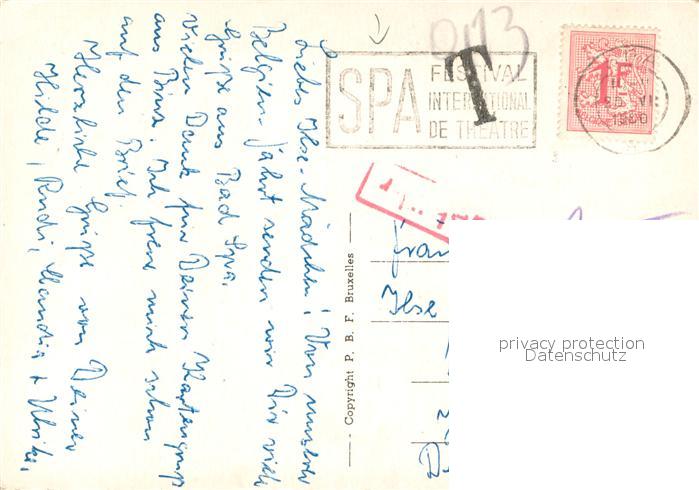 Liebes Ilse-Mädchen! Von unserer
Belgienfahrt senden wir Dir viele
Grüße aus Bad Spa.
Vielen Dank für Deinen Kartengruß
aus Binz. Ich freue mich schon
auf den Brief.
Herzliche Grüße von Deiner
Hilde, Rudi, Claudia + Ulrike.
Copyright P. B. F. Bruxelles
0113
SPA
FESTIVAL
INTERNATIONAL
DE THEATRE
T
1F
Frau
Ilse
privacy protection
Datenschutz